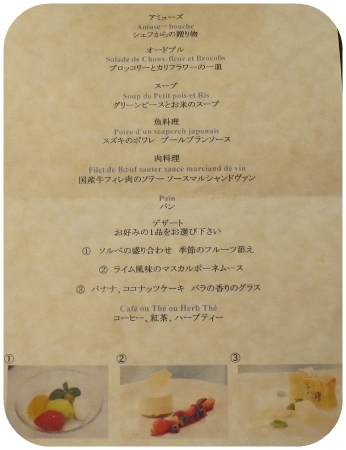 アミューズ
Amuse－bouche
シェフからの贈り物
オードブル
Salade de Chous-fleur et Brocolis
ブロッコリーとカリフラワーの一皿
スープ
Soup de Petit pois et Ris
グリーンピースとお米のスープ
魚料理
Poire d'un scaperch japonais
スズキのポワレ　ブールブランソース
肉料理
Filet de Bœuf sauter sauce marciand de vin
国産牛フィレ肉のソテー ソースマルシャンドヴァン
Pain
パン
デザート
お好みの1品をお選び下さい
① ソルベの盛り合わせ　季節のフルーツ添え
② ライム風味のマスカルポーネムース
③ バナナ、ココナッツケーキ　バラの香りのグラス
Café ou Thé ou Herb Thé
コーヒー、紅茶、ハーブティー
① ② ③